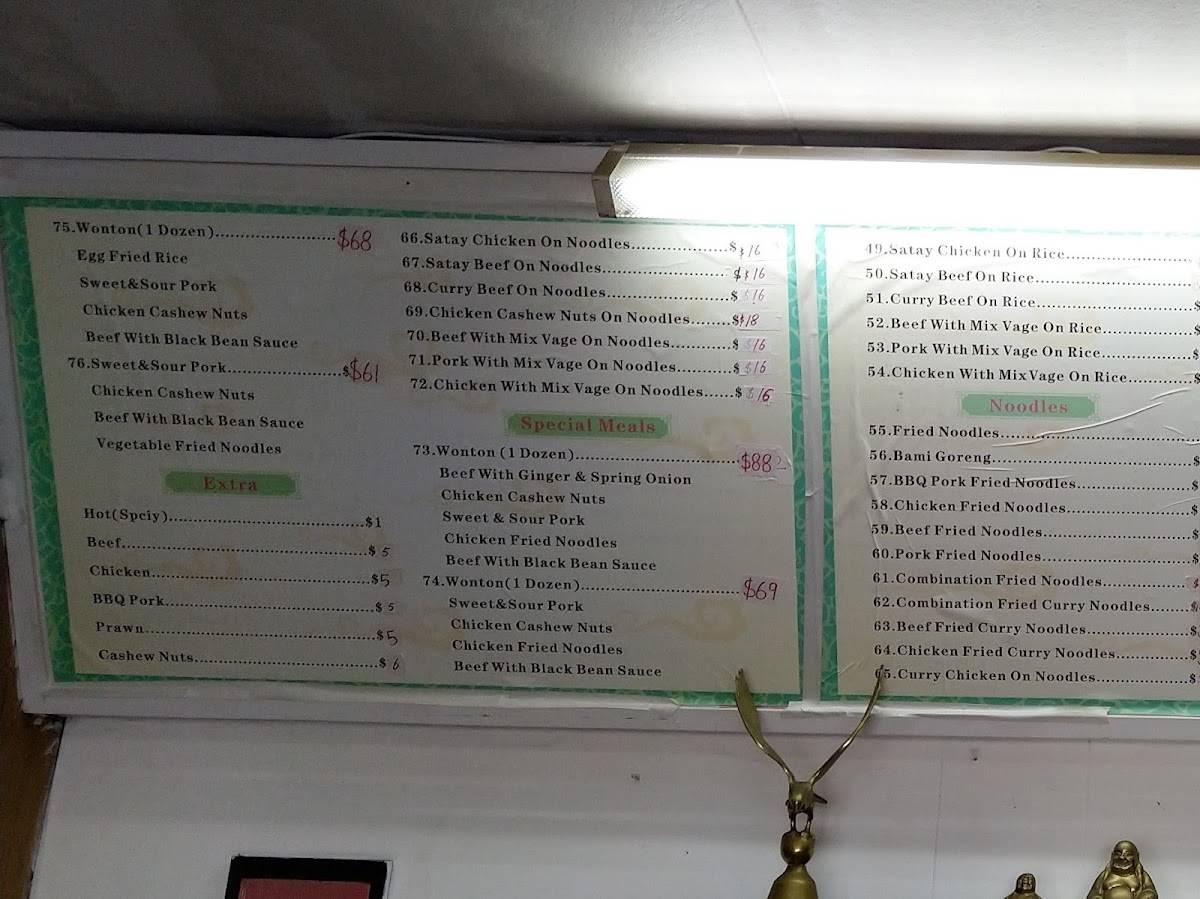 75.Wonton(1 Dozen)....................$68
Egg Fried Rice
Sweet&Sour Pork
Chicken Cashew Nuts
Beef With Black Bean Sauce
76.Sweet&Sour Pork....................$$61
Chicken Cashew Nuts
Beef With Black Bean Sauce
Vegetable Fried Noodles
Extra
Hot(Spciy)....................$1
Beef....................$ 5
Chicken....................$5
BBQ Pork....................$ 5
Prawn....................$5
Cashew Nuts....................$ 6
66.Satay Chicken On Noodles....................$ $16
67.Satay Beef On Noodles....................$ $16
68.Curry Beef On Noodles....................$ $16
69.Chicken Cashew Nuts On Noodles........$$18
70.Beef With Mix Vage On Noodles............$ $16
71.Pork With Mix Vage On Noodles...........$ $16
72.Chicken With Mix Vage On Noodles......$ $16
Special Meals
73.Wonton (1 Dozen)....................$88
Beef With Ginger & Spring Onion
Chicken Cashew Nuts
Sweet & Sour Pork
Chicken Fried Noodles
Beef With Black Bean Sauce
74.Wonton(1 Dozen)....................$69
Sweet&Sour Pork
Chicken Cashew Nuts
Chicken Fried Noodles
Beef With Black Bean Sauce
49.Satay Chicken On Rice....................
50.Satay Beef On Rice....................$
51.Curry Beef On Rice....................$
52.Beef With Mix Vage On Rice................$
53.Pork With Mix Vage On Rice................$
54.Chicken With Mix Vage On Rice...........$
Noodles
55.Fried Noodles....................
56.Bami Goreng....................$
57.BBQ Pork Fried Noodles....................$
58.Chicken Fried Noodles....................$
59.Beef Fried Noodles....................$
60.Pork Fried Noodles....................$
61.Combination Fried Noodles................$
62.Combination Fried Curry Noodles.......$
63.Beef Fried Curry Noodles....................$
64.Chicken Fried Curry Noodles............$
65.Curry Chicken On Noodles.................$